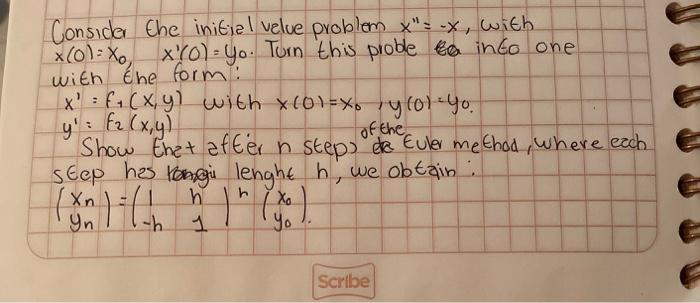 Consider the initial value problem x'' = -x, with
x(0) = x₀, x'(0) = y₀. Turn this proble into one
with the form:
x' = f₁(x,y) with x(0) = x₀, y(0) = y₀.
y' = f₂(x,y)
Show that after n steps of the Euler method, where each
step has lenght h, we obtain:
(xₙ yₙ) = (1 h -h 1)ⁿ (x₀ y₀).
Scribe